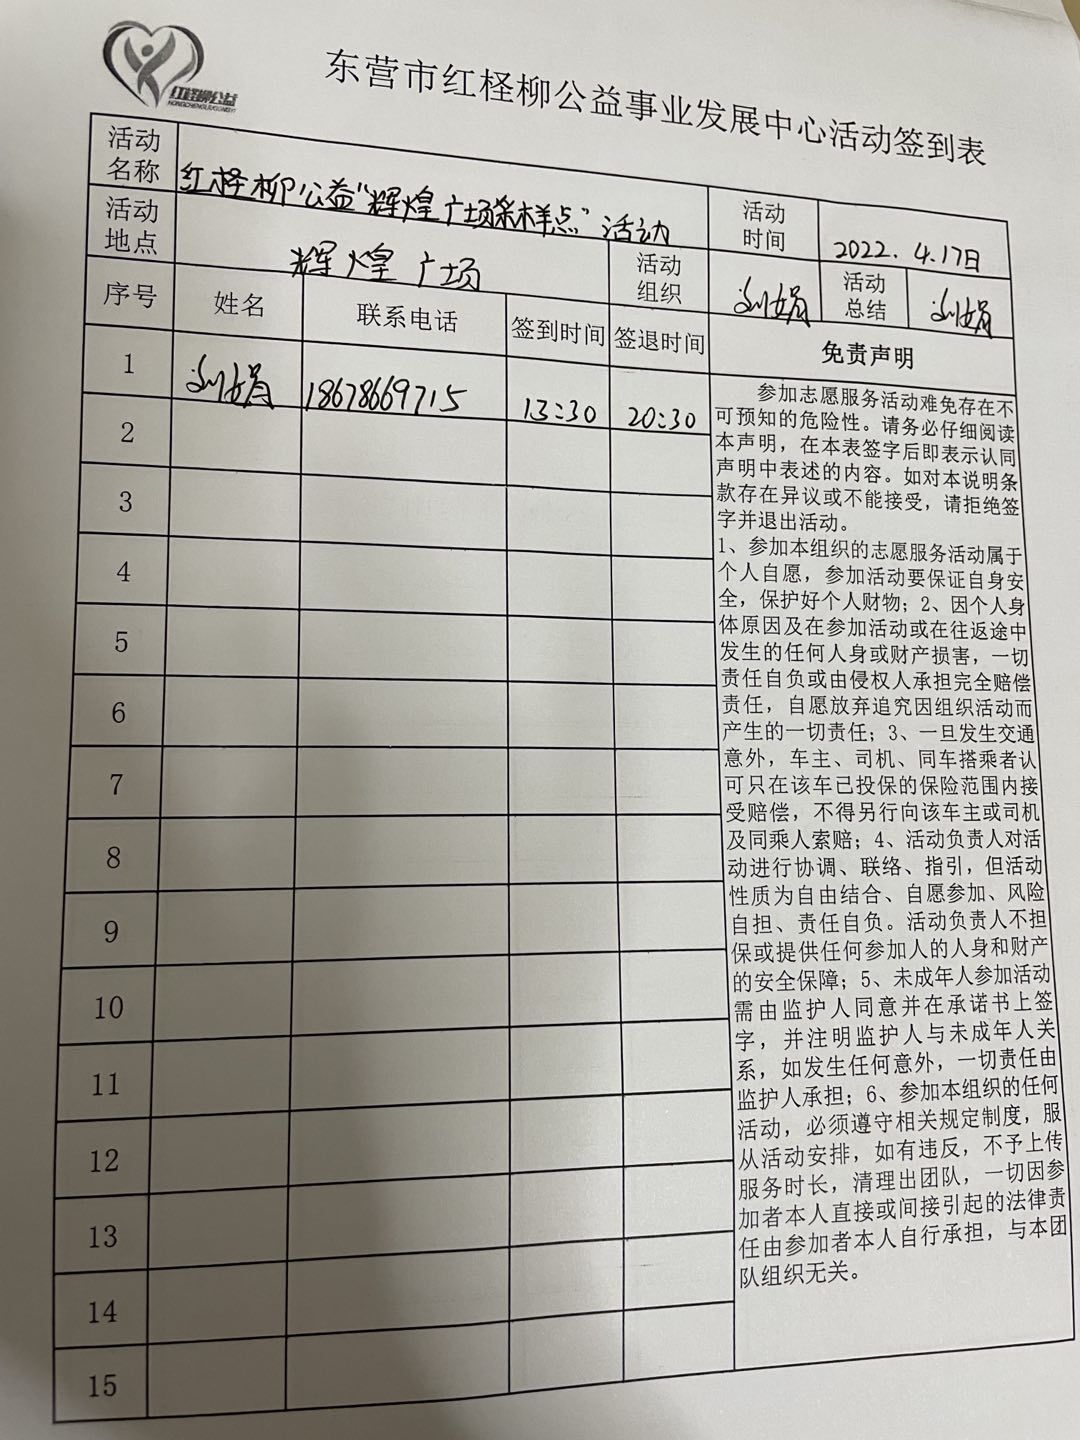 红柽柳公益
HONGCHENGLIUGONGYI
东营市红柽柳公益事业发展中心活动签到表
活动名称
红柽柳公益“辉煌广场采样点”活动
活动时间
2022.4.17日
活动地点
辉煌广场
活动组织
刘娟
活动总结
刘娟
序号 姓名 联系电话 签到时间 签退时间 免责声明
1 刘娟 18678669715 13:30 20:30
2
3
4
5
6
7
8
9
10
11
12
13
14
15
参加志愿服务活动难免存在不
可预知的危险性。请务必仔细阅读
本声明，在本表签字后即表示认同
声明中表述的内容。如对本说明条
款存在异议或不能接受，请拒绝签
字并退出活动。
1、参加本组织的志愿服务活动属于
个人自愿，参加活动要保证自身安
全，保护好个人财物；2、因个人身
体原因及在参加活动或在往返途中
发生的任何人身或财产损害，一切
责任自负或由侵权人承担完全赔偿
责任，自愿放弃追究因组织活动而
产生的一切责任；3、一旦发生交通
意外，车主、司机、同车搭乘者认
可只在该车已投保的保险范围内接
受赔偿，不得另行向该车主或司机
及同乘人索赔；4、活动负责人对活
动进行协调、联络、指引，但活动
性质为自由结合、自愿参加、风险
自担、责任自负。活动负责人不担
保或提供任何参加人的人身和财产
的安全保障；5、未成年人参加活动
需由监护人同意并在承诺书上签
字，并注明监护人与未成年人关
系，如发生任何意外，一切责任由
监护人承担；6、参加本组织的任何
活动，必须遵守相关规定制度，服
从活动安排，如有违反，不予上传
服务时长，清理出团队，一切因参
加者本人直接或间接引起的法律责
任由参加者本人自行承担，与本团
队组织无关。